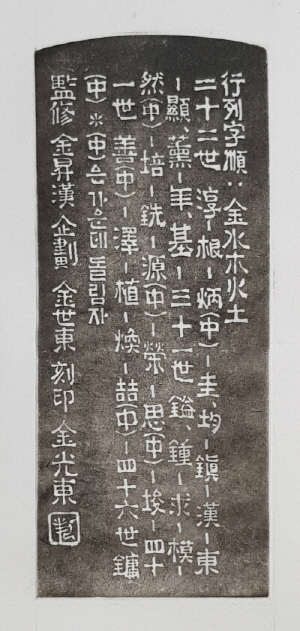 行列字順：金水木火土
二十二世 淳－根－炳(中)－圭、均－鎭－漢－東
－顯、薰－年、基－三十一世 鎰、鍾－求－模－
然(中)－培－銑－源(中)－榮－思(中)－埈－四十
一世 善(中)－澤－植－煥－喆(中)－四十六世 鏞
(中) ※(中)은 가운데 돌림자
監修 金昇漢 企劃 金世東 刻印 金光東